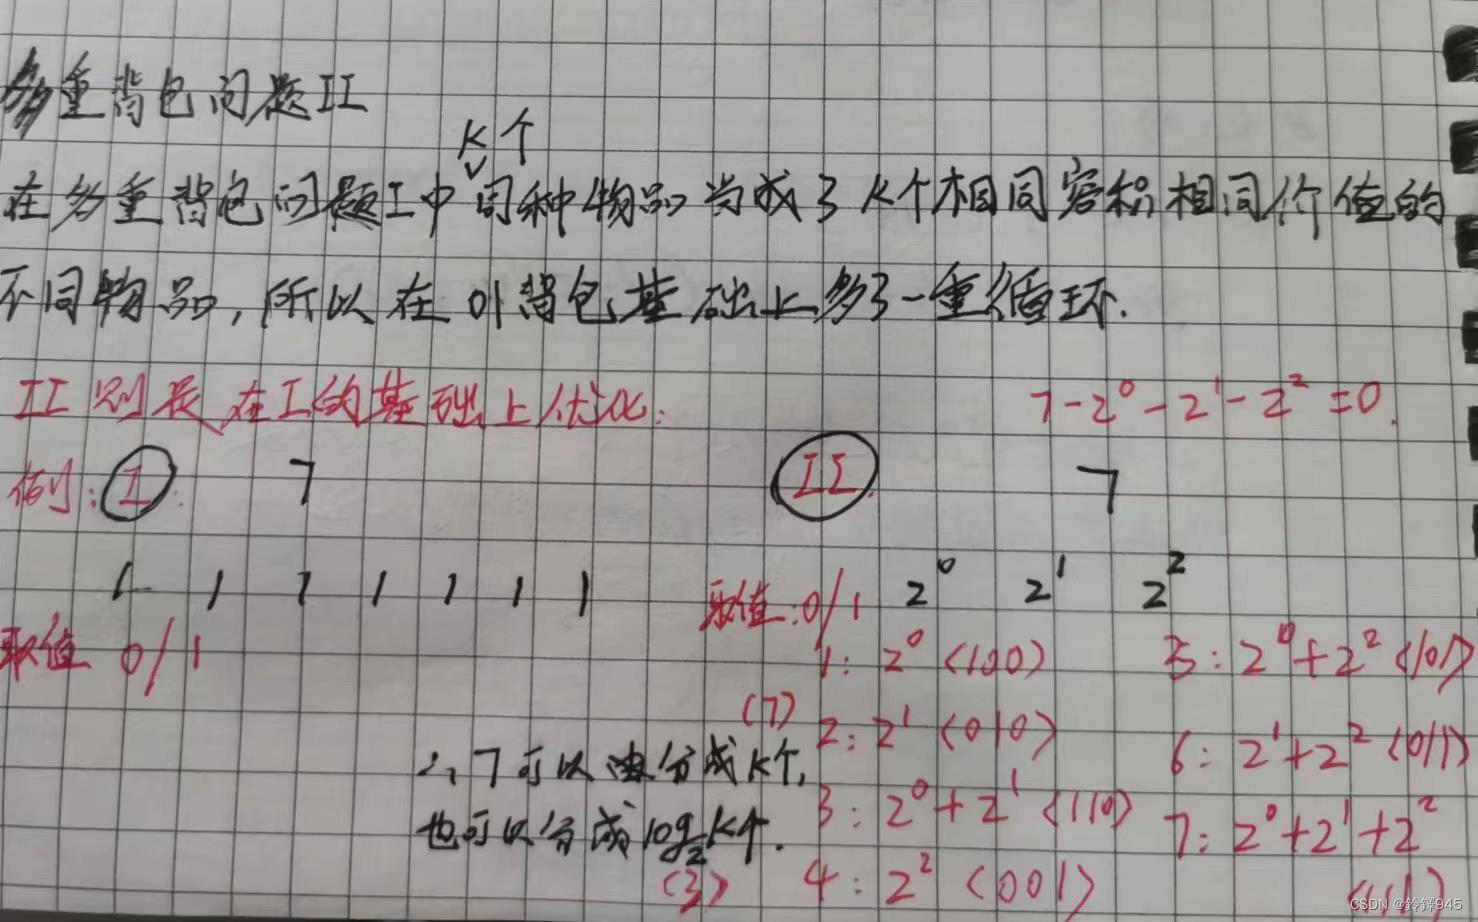 多重背包问题II
K个
在多重背包问题I中同种物品当成了K个相同容积相同价值的
不同物品,所以在01背包基础上多了一重循环.
II则是在I的基础上优化:
7-2⁰-2¹-2²=0.
例: I 7
1 1 1 1 1 1 1
取值 0/1
II. 7
取值:0/1 2⁰ 2¹ 2²
1: 2⁰ (100)
2: 2¹ (010)
3: 2⁰+2¹ (110)
4: 2² (001)
5: 2⁰+2² (101)
6: 2¹+2² (011)
7: 2⁰+2¹+2²
(111)
(7)
∴ 7可以分成K个,
也可以分成log₂K个.
(3)
CSDN @鈴鐸945